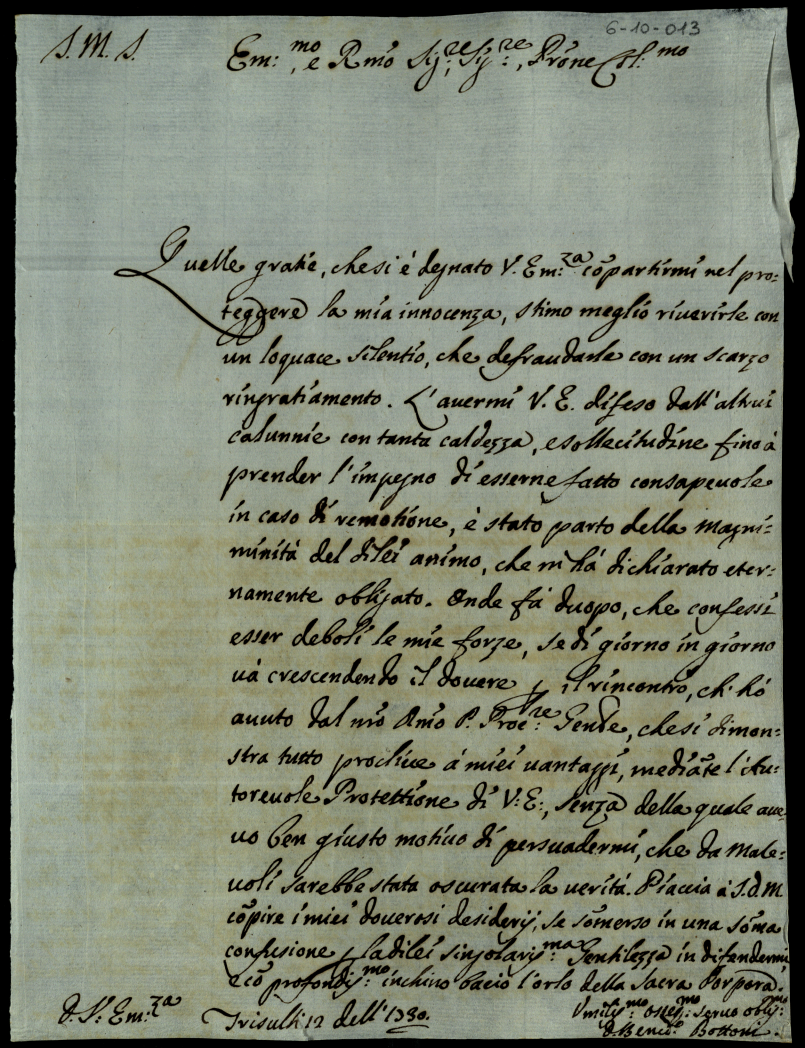 6-10-013
J. M. J.
Em:mo, e Rmõ Sig:re Sig:re, Prõne Col:mo
Quelle gratie, che si è degnato V. Em:za cõpartirmi nel pro=
teggere la mia innocenza, stimo meglio riuerirle con
un loquace silentio, che defraudarle con un scarzo
ringratiamento. L'auermi V. E. difeso dall'altrui
calunnie con tanta caldezza, e sollecitudine fino à
prender l'impegno di esserne fatto consapeuole
in caso di remotione, è stato parto della magni=
minità del di lei animo, che m'hà dichiarato eter=
namente obligato. Onde fà duopo, che confessi
esser deboli le mie forze, se di giorno in giorno
uà crescendo il douere p il rincontro, ch'hò
auuto dal nrõ Rmõ P. Proc:re Genle, che si dimon=
stra tutto procliue à miei uantaggi, mediãte l'Au=
toreuole Protettione di V: E:, senza della quale aue
uo ben giusto motiuo di persuadermi, che da Male=
uoli sarebbe stata oscurata la uerità. Piaccia à S. d. M.
cõpire i miei douerosi desiderij, se sõmerso in una sõma
confusione p la di lei singolaris:ma Gentilezza in difendermi
e cõ profondis:mo inchino bacio l'orlo della Sacra Porpora.
D. V: Em:za
Trisulti 12 dell'1730.
Vmilis:mo osseq:mo seruo oblig:mo
D. Bottoni.